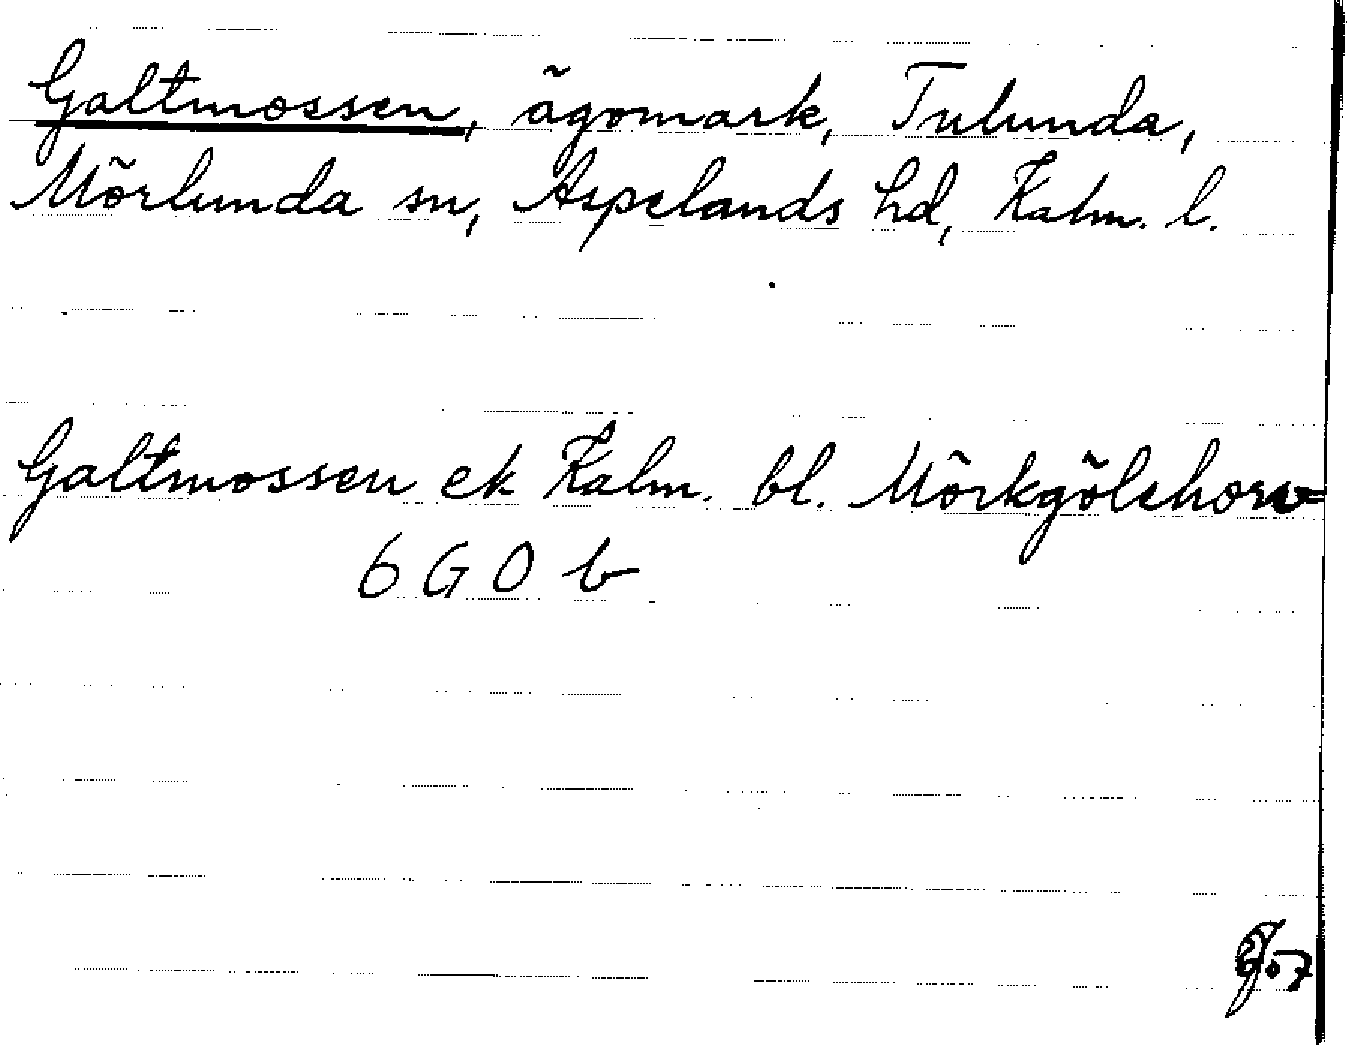 Galtmossen, ägomark, Tulunda,
Mörlunda sn, Aspelands hd, Kalm. l.
Galtmossen ek Kalm. bl. Mörkgölehorv=
6 G 0 b